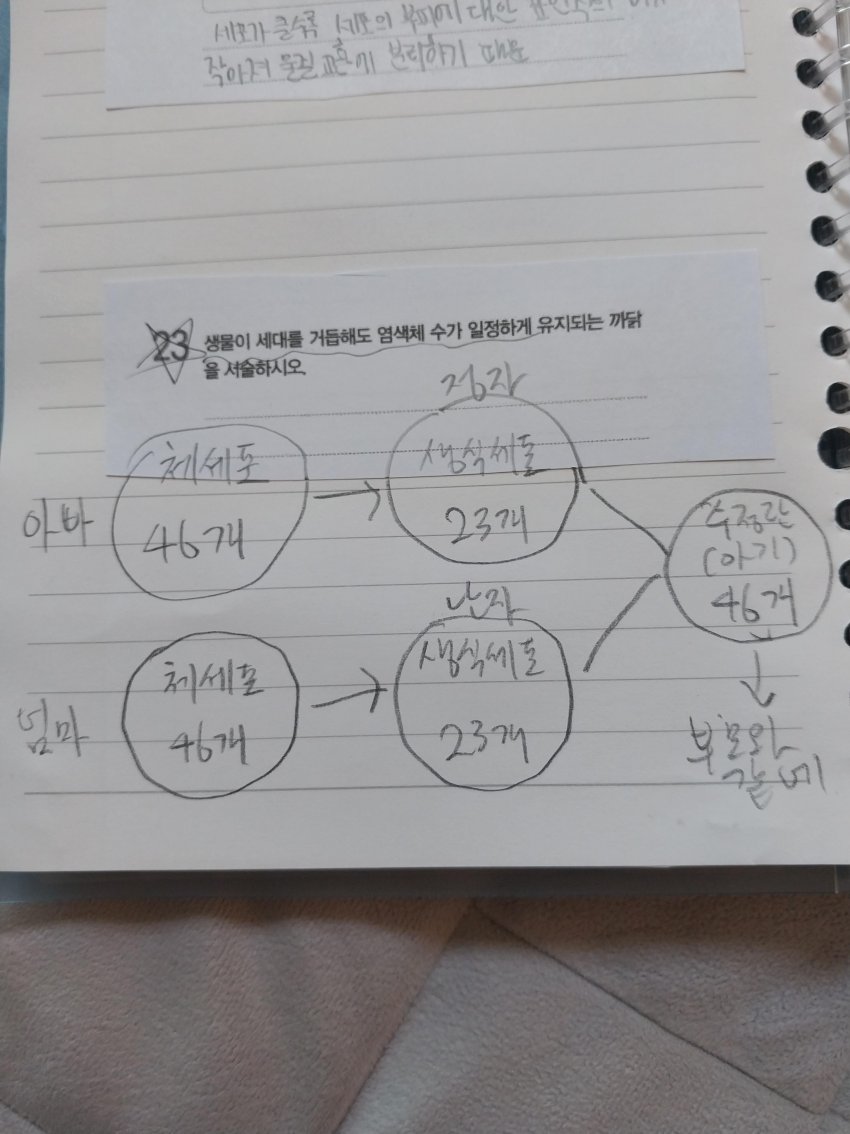 세포가 클수록 세포의 부피에 대한
작아져 물질 교환에 불리하기 때문
23 생물이 세대를 거듭해도 염색체 수가 일정하게 유지되는 까닭
을 서술하시오.
정자
아빠
체세포
46개
생식세포
23개
수정란
(아기)
46개
난자
엄마
체세포
46개
생식세포
23개
부모와
같네